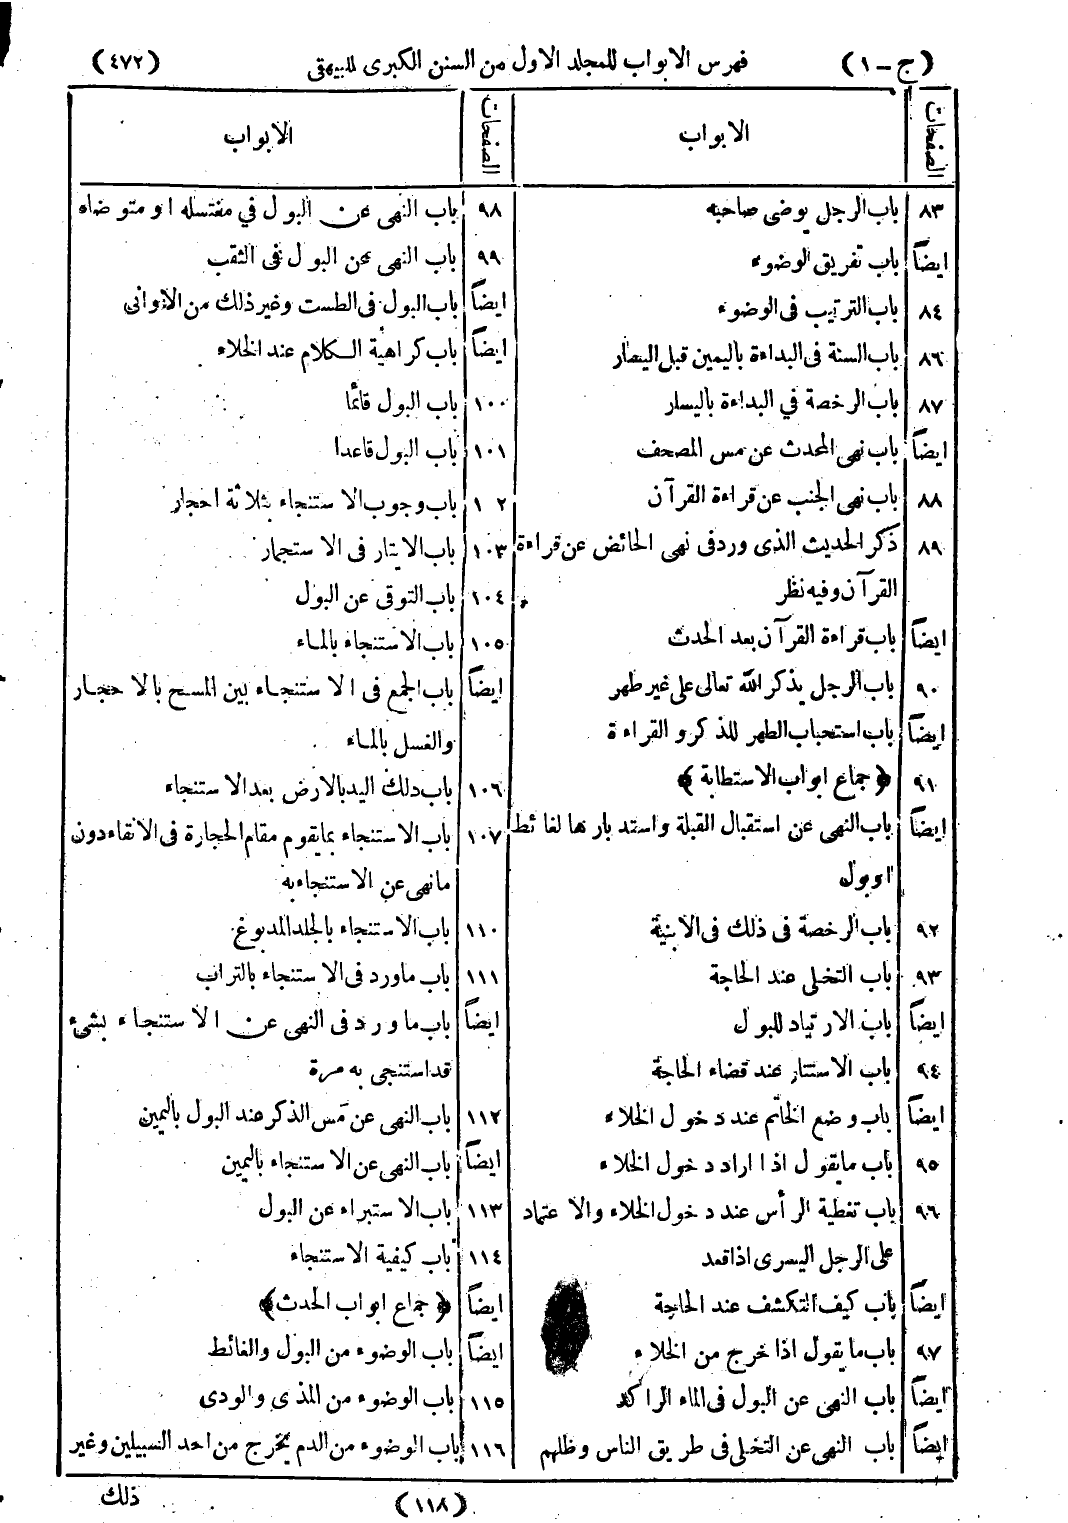 (ج - ١) فهرس الابواب للمجلد الاول من السنن الكبرى للبيهقى (٤٧٢)
الصفحات الابواب
٨٣ باب الرجل يوضى صاحبه
ايضاً باب تفريق الوضوء
٨٤ باب الترتيب فى الوضوء
٨٦ باب السنة فى البداءة باليمين قبل اليسار
٨٧ باب الرخصة في البداءة باليسار
ايضاً باب نهى المحدث عن مس المصحف
٨٨ باب نهى الجنب عن قراءة القرآن
٨٩ ذكر الحديث الذى ورد فى نهى الحائض عن قراءة
القرآن وفيه نظر
ايضاً باب قراءة القرآن بعد الحدث
٩٠ باب الرجل يذكر الله تعالى على غير طهر
ايضاً باب استحباب الطهر للذكر و القراءة
٩١ ﴿ جماع ابواب الاستطابة ﴾
ايضاً باب النهى عن استقبال القبلة واستدبارها لغائط
او بول
٩٢ باب الرخصة فى ذلك فى الابنية
٩٣ باب التخلى عند الحاجة
ايضاً باب الارتياد للبول
٩٤ باب الاستتار عند قضاء الحاجة
ايضاً باب وضع الخاتم عند دخول الخلاء
٩٥ باب مايقول اذا اراد دخول الخلاء
٩٦ باب تغطية الرأس عند دخول الخلاء والاعتماد
على الرجل اليسرى اذا قعد
ايضاً باب كيف التكشف عند الحاجة
٩٧ باب ما يقول اذا خرج من الخلاء
ايضاً باب النهى عن البول فى الماء الراكد
ايضاً باب النهى عن التخلى فى طريق الناس وظلهم
الصفحات الابواب
٩٨ باب النهى عن البول في مغتسله او متوضاه
٩٩ باب النهى عن البول فى الثقب
ايضاً باب البول فى الطست وغير ذلك من الاوانى
ايضاً باب كراهية الكلام عند الخلاء
١٠٠ باب البول قائما
١٠١ باب البول قاعدا
١٠٢ باب وجوب الاستنجاء بثلاثة احجار
١٠٣ باب الايتار فى الاستجمار
١٠٤ باب التوقى عن البول
١٠٥ باب الاستنجاء بالماء
ايضاً باب الجمع فى الاستنجاء بين المسح بالاحجار
والغسل بالماء
١٠٦ باب دلك اليد بالارض بعد الاستنجاء
١٠٧ باب الاستنجاء بمايقوم مقام الحجارة فى الانقاء دون
مانهى عن الاستنجاء به
١١٠ باب الاستنجاء بالجلد المدبوغ
١١١ باب ماورد فى الاستنجاء بالتراب
ايضاً باب ما ورد فى النهى عن الاستنجاء بشىء
قد استنجى به مرة
١١٢ باب النهى عن مس الذكر عند البول باليمين
ايضاً باب النهى عن الاستنجاء باليمين
١١٣ باب الاستبراء عن البول
١١٤ باب كيفية الاستنجاء
ايضاً ﴿ جماع ابواب الحدث ﴾
ايضاً باب الوضوء من البول والغائط
١١٥ باب الوضوء من المذى والودى
١١٦ باب الوضوء من الدم يخرج من احد السبيلين وغير
(١١٨) ذلك